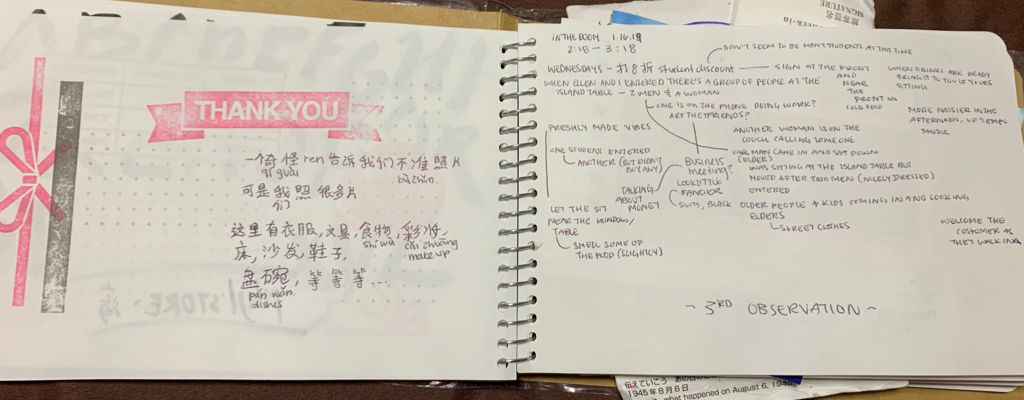 THANK YOU
一个奇怪ren告诉我们不准照片
qí guài
bù zhǔn
可是我们照很多片
这里有衣服,文具,食物,彩妆,
shí wù
cǎi zhuāng
make up
床,沙发,鞋子,
盘碗,等等等...
pán wǎn
dishes
STORE
IN THE ROOM 1.16.19
2:18 – 3:18
DON'T SEEM TO BE MANY STUDENTS AT THIS TIME
WEDNESDAYS – 打8折 student discount – SIGN AT THE FRONT
AND
NEAR
THE
FRONT ON
COLD FOOD
WHEN DRINKS ARE READY
BRING IT TO YOU IF YOU'RE
SITTING
WHEN ELLEN AND I ENTERED THERE'S A GROUP OF PEOPLE AT THE
ISLAND TABLE – 2 MEN & A WOMAN
ONE IS ON THE PHONE DOING WORK?
ARE THEY FRIENDS?
MORE NOISIER IN THE
AFTERNOON, UP TEMPO
MUSIC
FRESHLY MADE VIBES
ANOTHER WOMAN IS ON THE
COUCH CALLING SOMEONE
ONE STUDENT ENTERED
ANOTHER (BUT DIDN'T
BUY ANY)
BUSINESS
MEETING?
LOOK LITTLE
FANCIER
SUITS, BLACK
ONE MAN CAME IN AND SAT DOWN
(OLDER)
WAS SITTING AT THE ISLAND TABLE BUT
MOVED AFTER TWO MEN (NICELY DRESSED)
ENTERED
TALKING
ABOUT
MONEY
LET THE SIT
NEAR THE WINDOW/
TABLE
SMELL SOME OF
THE FOOD (SLIGHTLY)
OLDER PEOPLE & KIDS COMING IN AND LOOKING
ELDERS
STREET CLOTHES
WELCOME THE
COSTUMER AS
THEY WALK IN
~ 3RD OBSERVATION ~
旅客署名
SIGNATURE
eck-in
伝えていこう
1945年8月6日
what happened on August 6, 1945